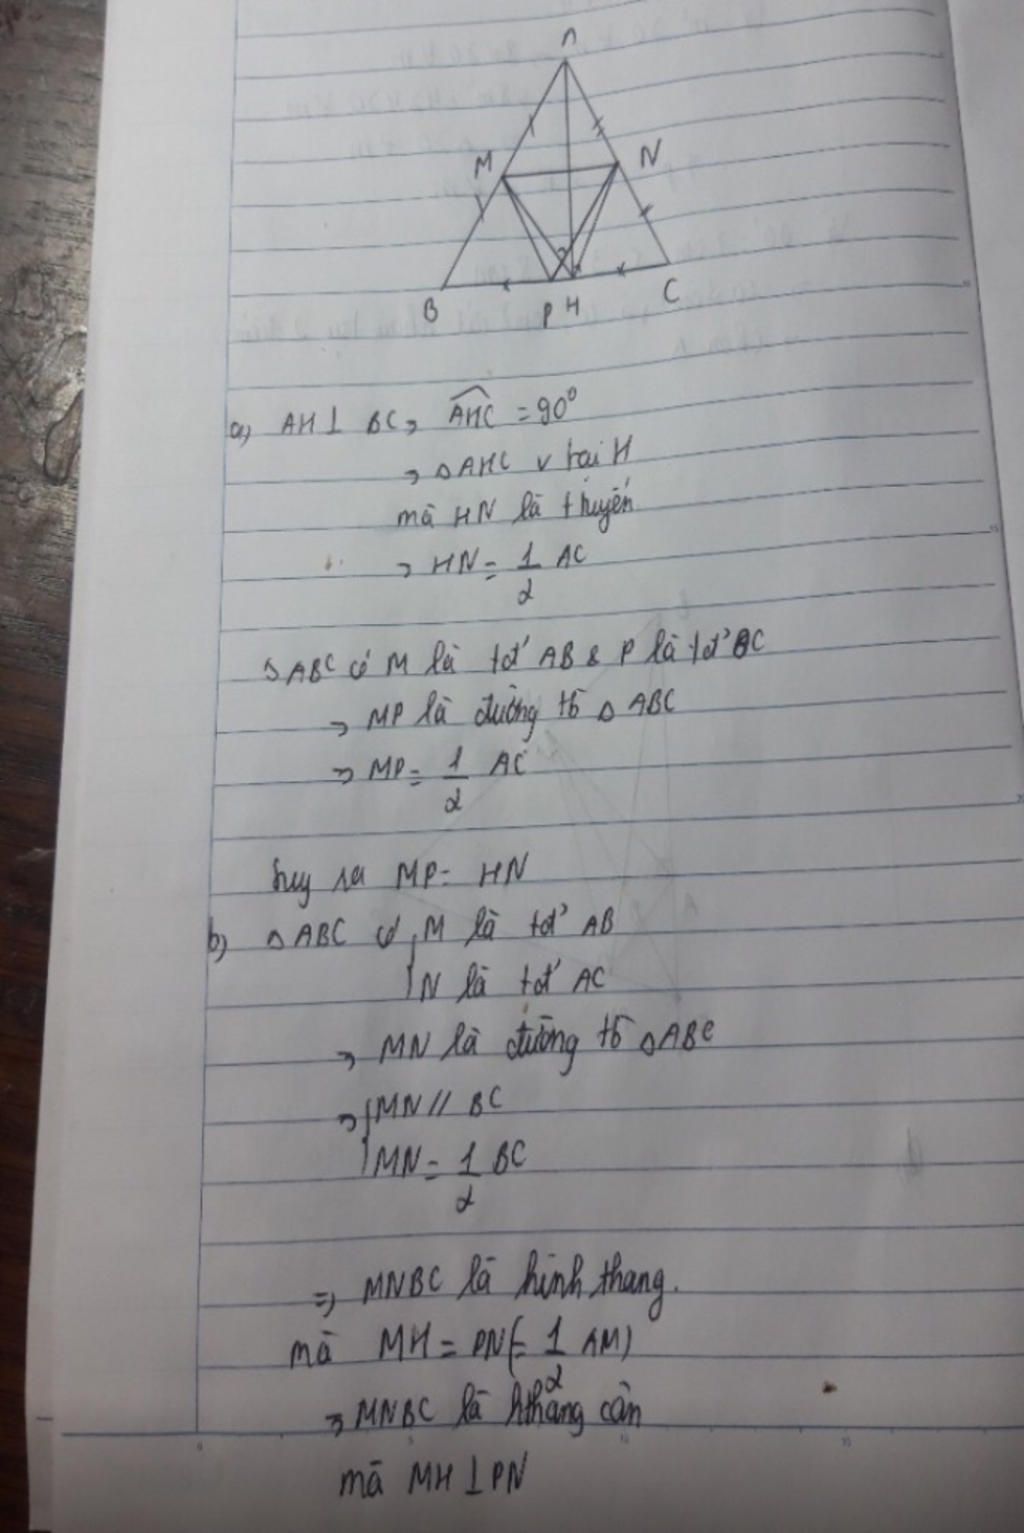 A
M
N
B
P H
C
a) AH ⊥ BC → \widehat{AHC} = 90°
→ △AHC v tại H
mà HN là tr tuyến
→ HN = 1/2 AC
△ABC có M là tđ' AB & P là tđ' BC
→ MP là đường tb △ABC
→ MP = 1/2 AC
suy ra MP = HN
b) △ABC có { M là tđ' AB
N là tđ' AC
→ MN là đường tb △ABC
→ { MN // BC
MN = 1/2 BC
⇒ MNBC là hình thang.
mà MH = PN (= 1/2 AM)
→ MNBC là hthang cân
mà MH ⊥ PN